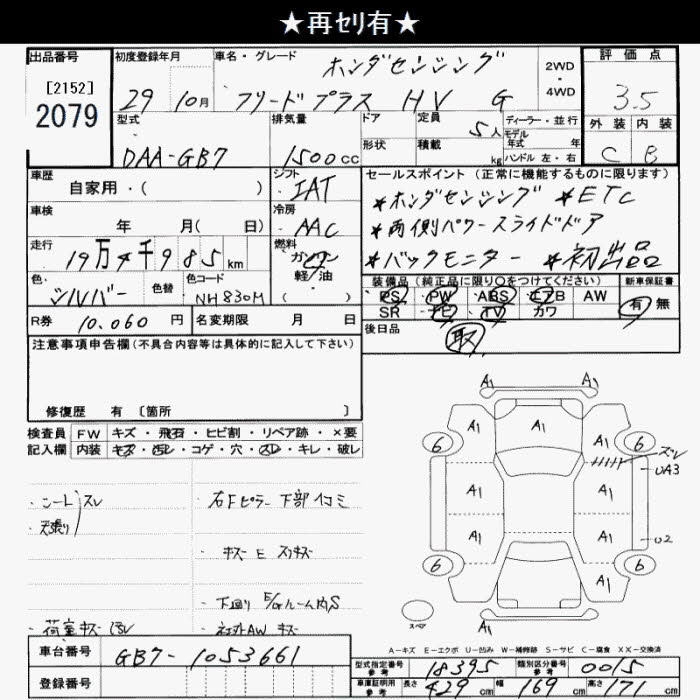 ★再セリ有★
出品番号 初度登録年月 車名・グレード ホンダセンシング 2WD・4WD 評価点
[2152]
2079
29 10月 フリードプラス HV G 3.5
型式 排気量 ドア 定員 5人 ディーラー・並行 外装 内装
モデル年式 年
DAA-GB7 1500cc 形状 積載 kg ハンドル 左・右 C B
車歴 シフト セールスポイント (正常に機能するものに限ります)
自家用・( ) IAT *ホンダセンシング *ETC
車検 冷房 *両側パワースライドドア
年 月( 日) AAC *バックモニター *初出品
走行 19万4千985km 燃料 ガソリン 軽油 ( )
色 シルバー 色替 色コード NH830M
装備品 (純正品に限り○をつけてください) 新車保証書
PS PW ABS エアB AW 有 無
SR ナビ TV カワ
R券 10,060円 名変期限 月 日
後日品 取
注意事項申告欄(不具合内容等は具体的に記入して下さい)
修復歴 有 〔箇所 〕
検査員 FW キズ・飛石・ヒビ割・リペア跡・×要
記入欄 内装 キズ・汚レ・コゲ・穴・スレ・キレ・破レ
・シート スレ
・天張り
・右Fピラー下部凹ミ
・キズ E スリキズ
・下廻り E/gルーム内S
・荷室キズ
・社外AW キズ
A1 A1
6 A1 A1 A1 6
スレ
UA3
A1 A1
A1 A1 U2
6 A1 A1 6
スペア
A1
A-キズ E-エクボ U-凹み W-補修跡 S-サビ C-腐食 XX-交換済
車台番号 GB7-1053661
登録番号
型式指定番号 参考 18395 類別区分番号 参考 0015
車庫証明用 参考 長さ 429cm 幅 169cm 高さ 171cm